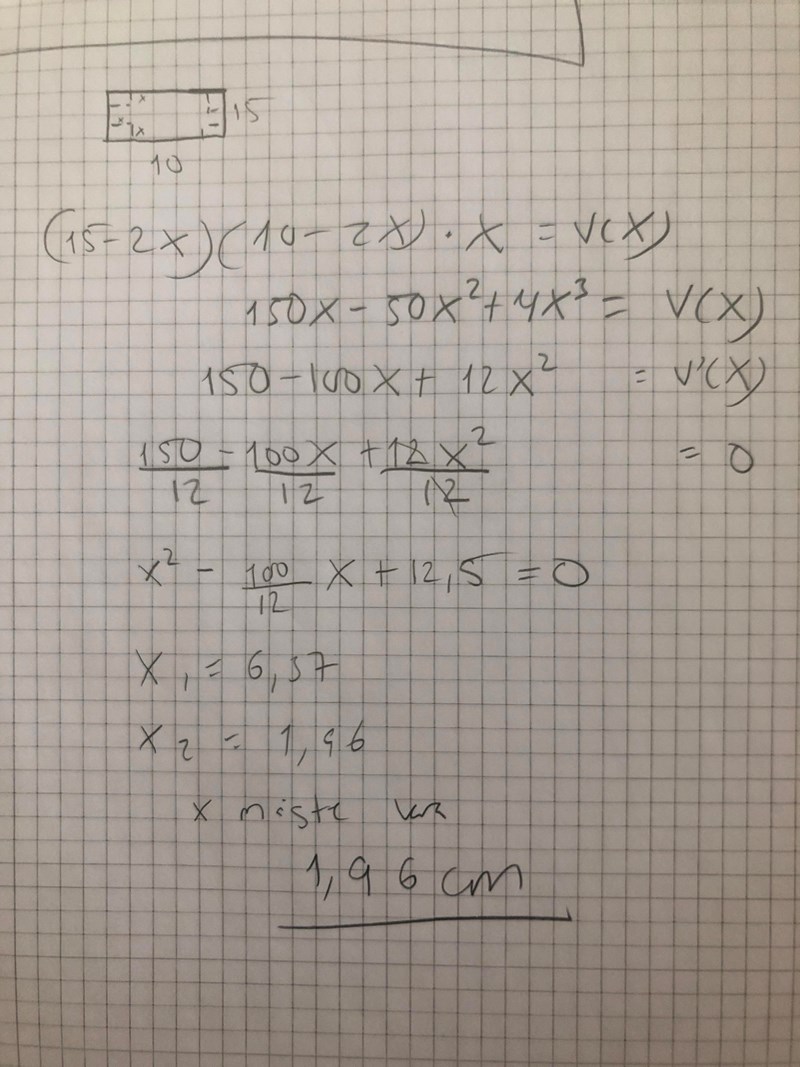 x
15
x
x
10
(15-2x)(10-2x)·x = V(x)
150x - 50x² + 4x³ = V(x)
150 - 100x + 12x² = V'(x)
150/12 - 100x/12 + 12x²/12 = 0
x² - 100/12 x + 12,5 = 0
x₁ = 6,37
x₂ = 1,96
x måste va
1,96 cm